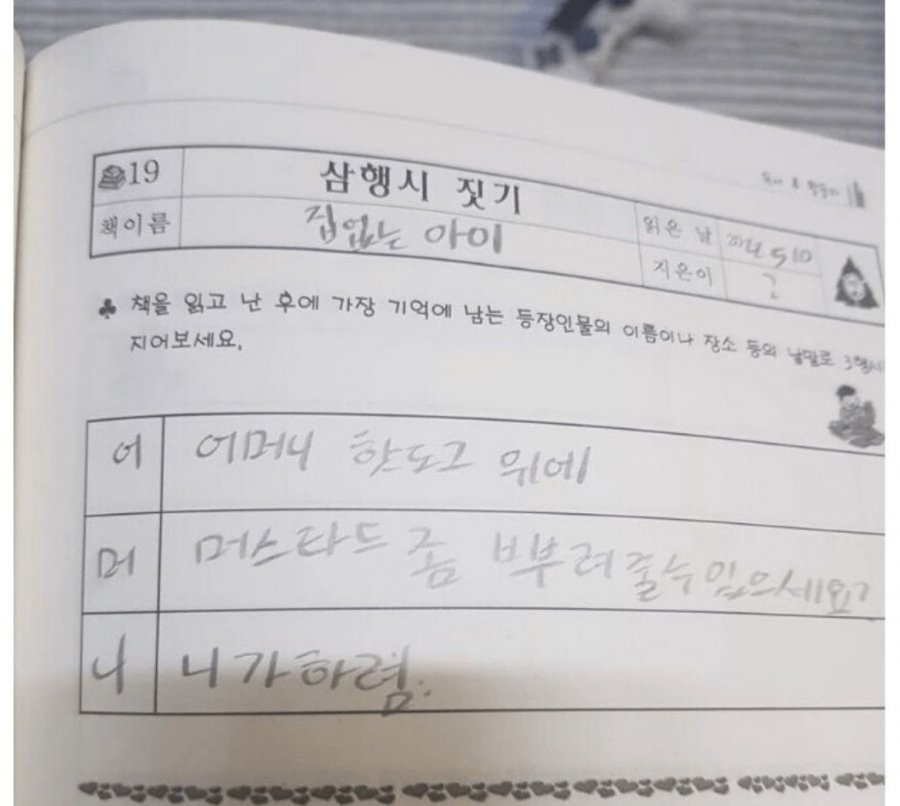 19 삼행시 짓기
책이름 집없는 아이 읽은 날
지은이 ?
♣ 책을 읽고 난 후에 가장 기억에 남는 등장인물의 이름이나 장소 등의 낱말로 3행시
지어보세요.
어 어머니 핫도그 위에
머 머스타드 좀 뿌려줄수
니 니가하렴.